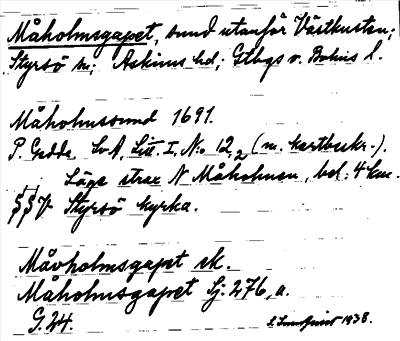 Måholmsgapet, sund utanför Västkusten;
Styrsö sn; Askims hd; Gtbgs o. Bohus l.
Måholmssund 1691.
P. Gedda Lv. A, Litt. I, N:o 12, 2 (m. kartbeskr.).
Läge strax N Måholmen, bel. 4 km.
Styrsö kyrka.
Måvholmsgapet ek.
Måholmsgapet Sj. 276, a.
G. 24.
1938.